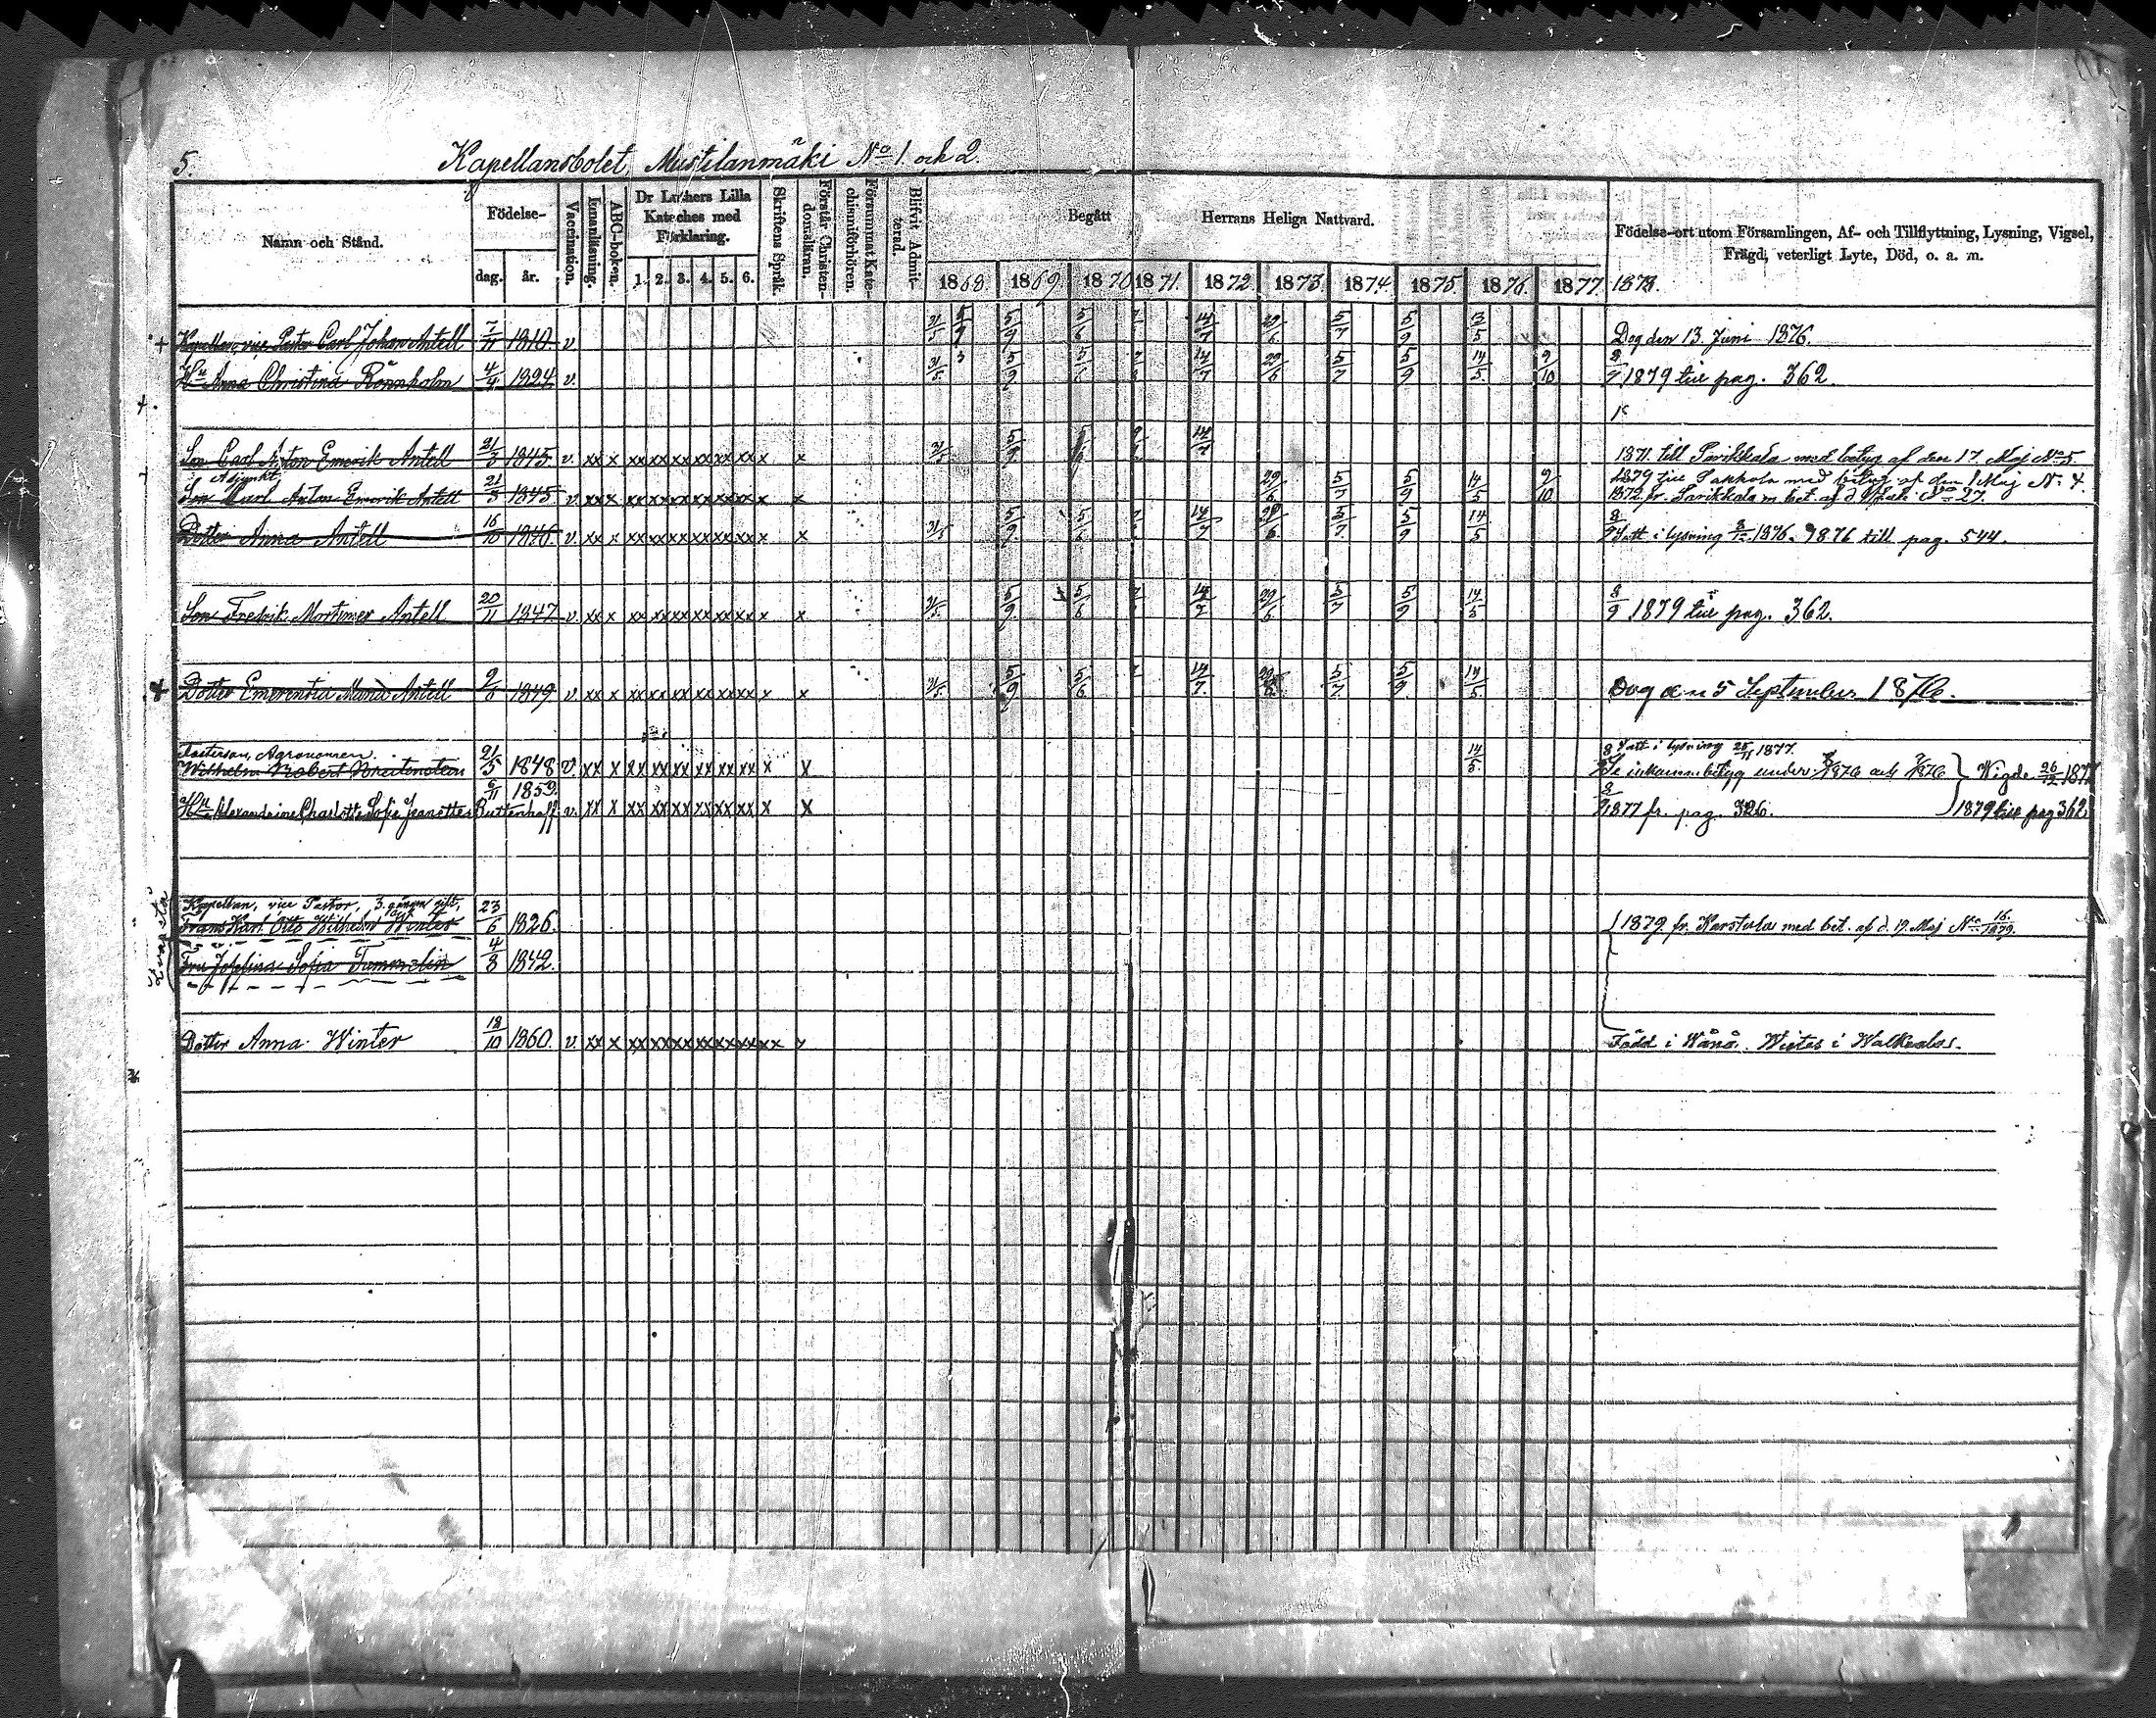 5.
Kapellansbolet, Mustilanmäki No 1 och 2.
Namn och Stånd.
Födelse-
dag. år.
Vaccination.
Innanläsning.
ABC-boken.
Dr Luthers Lilla
Kateches med
Förklaring.
1. 2. 3. 4. 5. 6.
Skriftens Språk.
Förstår Christen-
domslåran.
Försummat Kate-
chismiförhören.
Blifvit Admit-
terad.
Begått Herrans Heliga Nattvard.
1868. 1869. 1870 1871. 1872. 1873. 1874. 1875. 1876. 1877. 1878.
Födelse-ort utom Församlingen, Af- och Tillflyttning, Lysning, Vigsel,
Frägd, veterligt Lyte, Död, o. a. m.
+ Kapellan, vice Pastor Carl Johan Antell 7/11 1810. v. 31/5 5/9 5/9 5/6 14/7 29/6 5/7 5/9 13/5 Dog den 13. Juni 1876.
Hu Anna Christina Rönnholm 4/4 1824. v. 31/5 5/9 5/6 14/7 29/6 5/7 5/9 14/5 9/10 1879 till pag. 362.
Son Carl Anton Emerik Antell 21/3 1845. v. xx x xx xx xx xx xx xx x x 31/5 5/9 5/6 14/7 1871. till Parikkala med betyg af den 17. Maj No 5.
Adjunkt 1879 till Sakkola med betyg af den 1 Maj N: 4.
Son Karl Anton Emerik Antell 21/3 1845 v. xx x xx xx xx xx xx xx x x 29/6 5/7 5/9 14/5 9/10 1872. fr. Parikkala m. bet. af d.
Dotter Anna Antell 16/10 1846. v. xx x xx xx xx xx xx xx x x 31/5 5/9 5/6 14/7 29/6 5/7 5/9 14/5 8/9 Tatt i lysning 1876. 1876 till pag. 544.
Son Fredrik Mortimer Antell 20/11 1847. v. xx x xx xx xx xx xx xx x x 31/5 5/9 5/6 14/7 29/6 5/7 5/9 14/5 8/9 1879 till pag. 362.
+ Dotter Emerentia Maria Antell 1849. v. xx x xx xx xx xx xx xx x x 31/5 5/9 5/6 14/7. 29/6 5/7 5/9 14/5 Dog den 5 September 1876.
Agronomen 8 Tatt i lysning 25/11 1877.
Wilhelm Robert Breitenstein 21/5 1848 v. xx x xx xx xx xx xx xx x x 14/5 Se inkomne betyg under 1876 Wigde 26/12 1877
1859.
Hu Alexandrine Charlotta Sofia Jeanette Ruttenhoff v. xx x xx xx xx xx xx xx x x 8/9 1877 fr. pag. 326. 1879 till pag 362.
Kapellan, vice Pastor, 3. gången gift,
Frans Karl Otto Wilhelm Winter 23/6 1826. 1879. fr. Karstula med bet. af d. 19. Maj No 16. 1879.
Fru Josefina Sofia 4/8 1842.
Dotter Anna Winter 12/10 1860. v. xx x xx xx xx xx xx xx x Född i Wånå. Wistas i Walkeala.